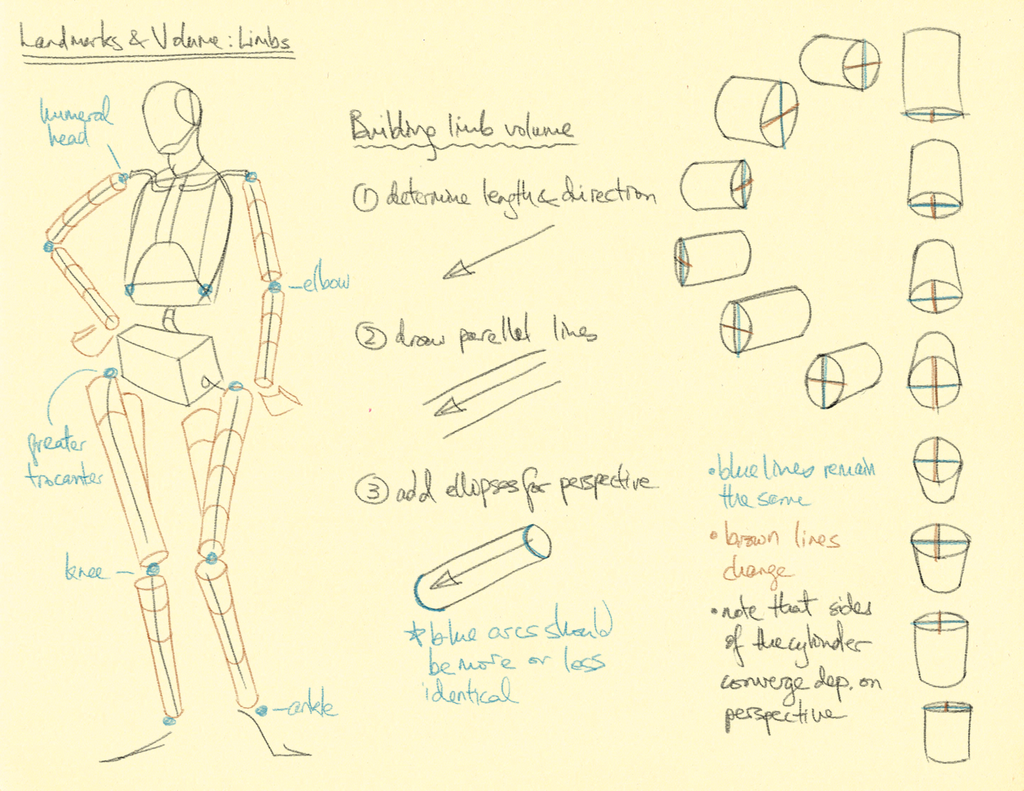 Landmarks & Volume: Limbs
humeral
head
elbow
greater
trocanter
knee
ankle
Building limb volume
① determine length & direction
② draw parallel lines
③ add ellipses for perspective
* blue arcs should
be more or less
identical
• blue lines remain
the same
• brown lines
change
• note that sides
of the cylinder
converge dep. on
perspective